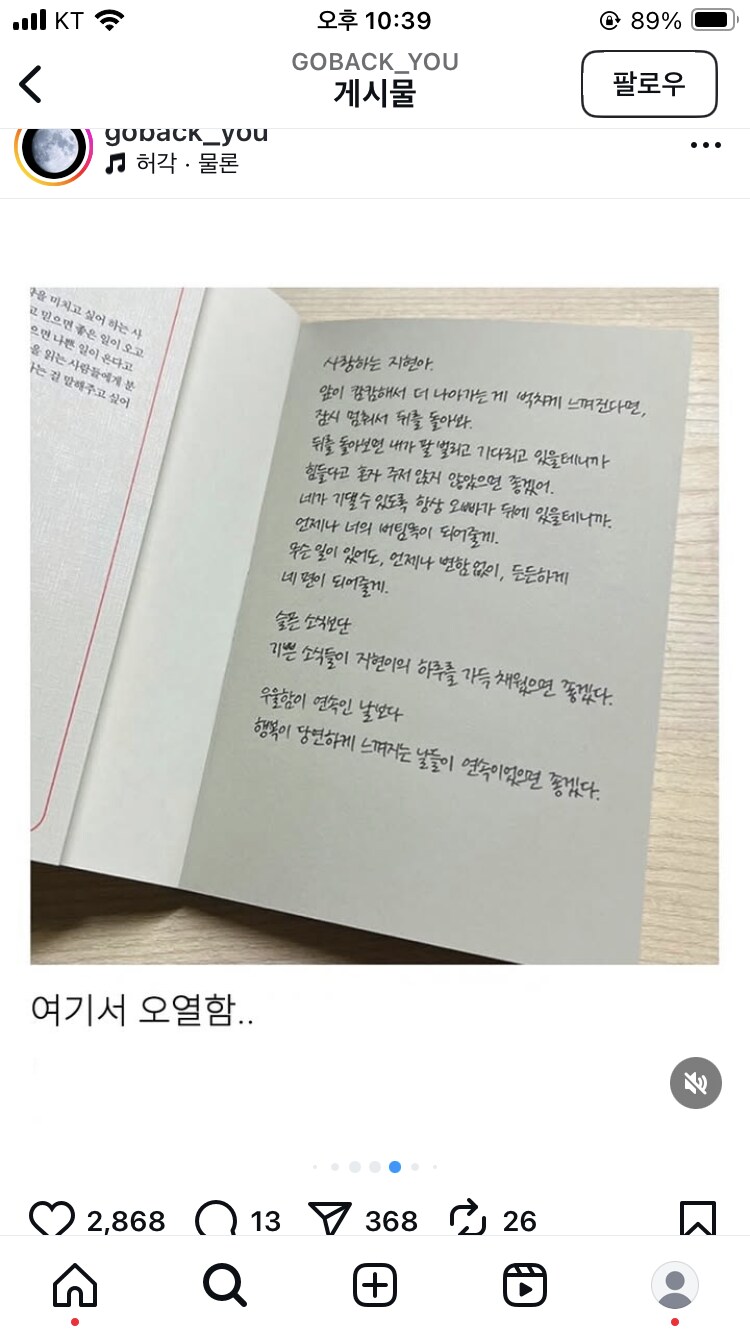 KT
오후 10:39
89%
GOBACK_YOU
게시물
팔로우
goback_you
허각 · 물론
을 미치고 싶어 하는 사
고 믿으면 좋은 일이 오고
으면 나쁜 일이 온다고
을 읽는 사람들에게 분
다는 걸 말해주고 싶어
사랑하는 지현아.
앞이 캄캄해서 더 나아가는 게 벅차게 느껴진다면,
잠시 멈춰서 뒤를 돌아봐.
뒤를 돌아보면 내가 팔 벌리고 기다리고 있을테니까
힘들다고 혼자 주저 앉지 않았으면 좋겠어.
네가 기댈 수 있도록 항상 오빠가 뒤에 있을테니까.
언제나 너의 버팀목이 되어줄게.
무슨 일이 있어도, 언제나 변함 없이, 든든하게
네 편이 되어줄게.
슬픈 소식보단
기쁜 소식들이 지현이의 하루를 가득 채웠으면 좋겠다.
우울함이 연속인 날보다
행복이 당연하게 느껴지는 날들이 연속이었으면 좋겠다.
여기서 오열함..
2,868
13
368
26